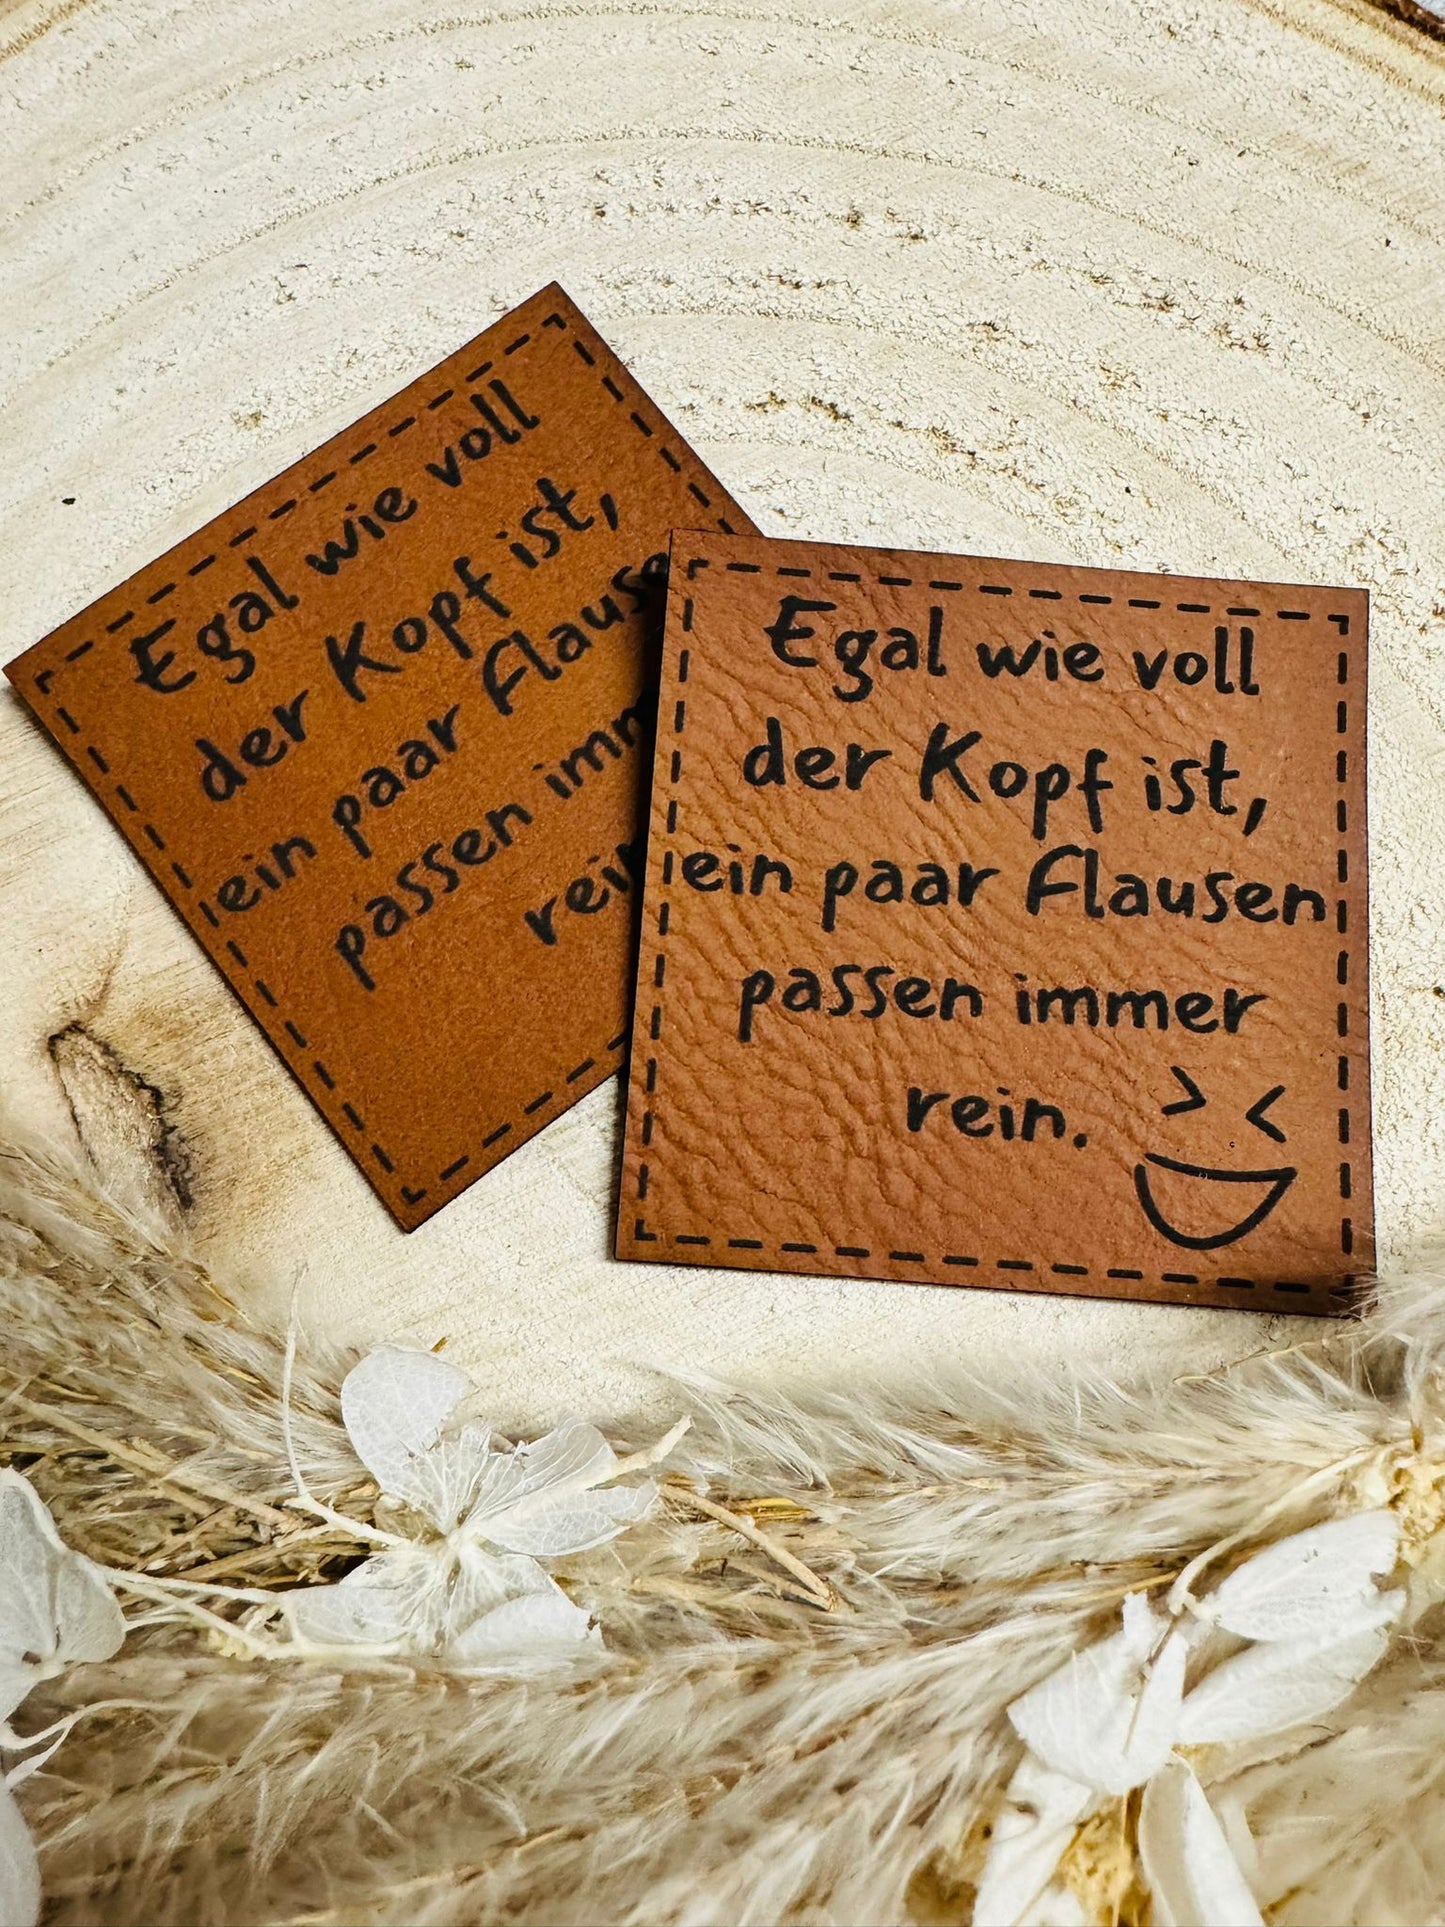 Egal wie voll
der Kopf ist,
ein paar Flause
passen imm
rein
Egal wie voll
der Kopf ist,
ein paar Flausen
passen immer
rein.